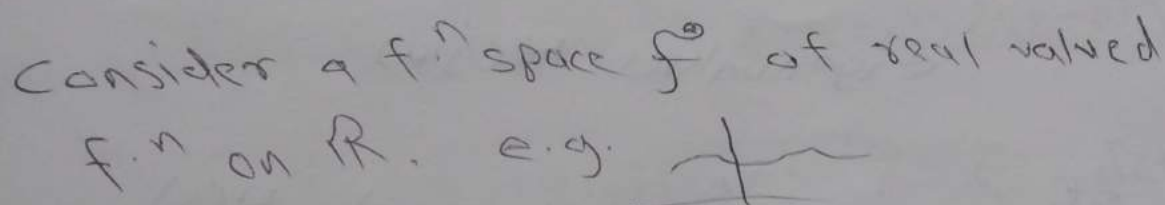 Consider a f.n space f∞ of real valued
f.n on ℝ. e.g.